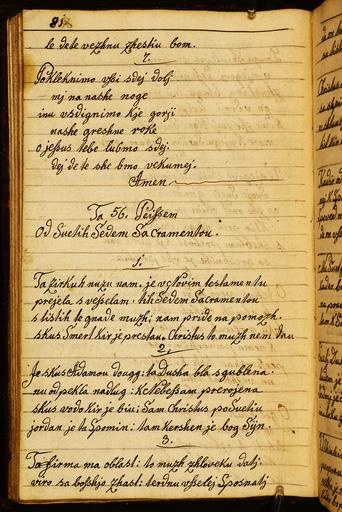 85.
le dete vezhnu zhestiu bom.
7.
Pokleknimo vsi sdej dolj
nj na nashe noge
inu vsdignimo kje gorji
nashe greshne roke
o jessus tebe lubmo sdej.
dej de te ske bmo vekumej.
Amen
Ta 56. Peissem
Od Suetih Sedem Sacramentou.
1.
Ta zirkuh nuzu nam, je v Novim testamentu
prejela s vesselam tih Sedem Sacramentou
s tistih te gnade muzh; nam pride na pomozh.
skus Smert kir je prestau Christus to muzh nem dau
2.
Je skus Adamou dougg; ta Dusha bla sgublena.
nu odpekla nadlug: K Nebessam prerojena
skus vodo kir je biu; Sam Christus posuetiu
jordan je ta Spomin: tam kershen je bog Syn.
3.
Ta firma ma oblast: to muzh zhloveku datj.
viro sa boshjo zhast: terdnu vsselej Sposnatj